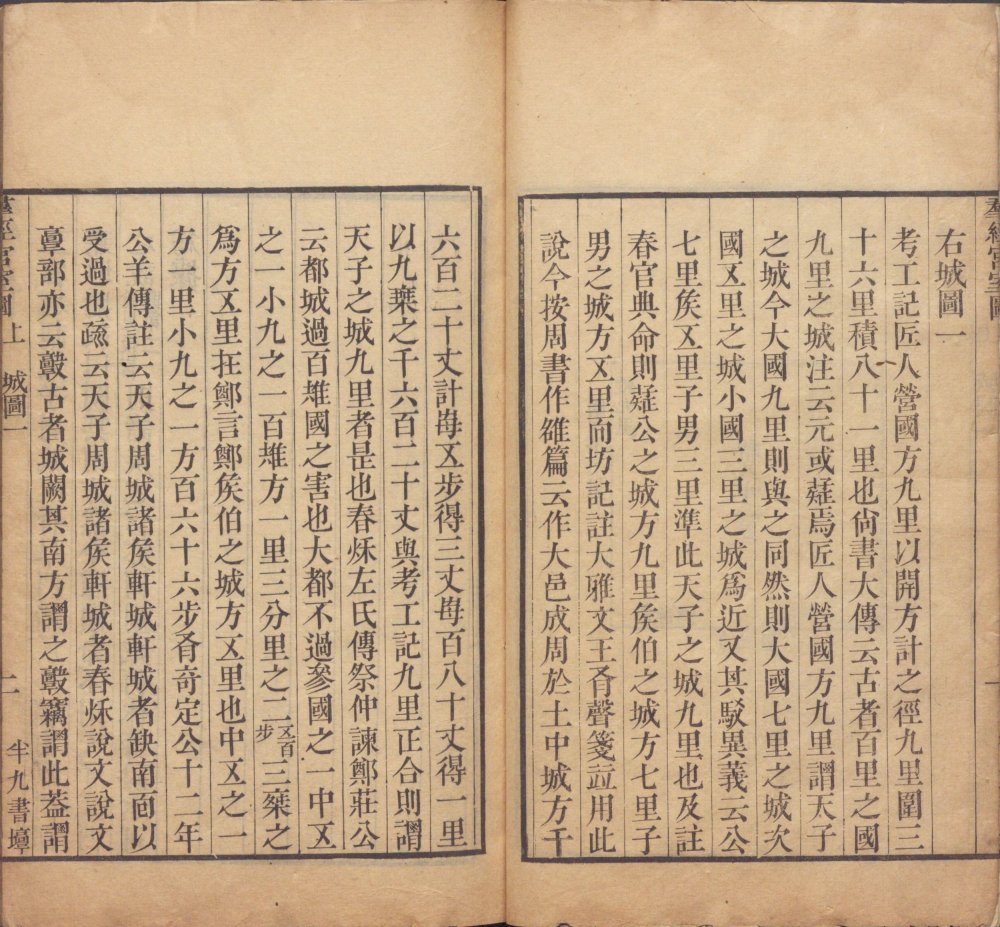 羣經宮室圖
一
右城圖一
考工記匠人營國方九里以開方計之徑九里圍三
十六里積八十一里也尙書大傳云古者百里之國
九里之城注云元或疑焉匠人營國方九里謂天子
之城今大國九里則與之同然則大國七里之城次
國五里之城小國三里之城爲近又其駁異義云公
七里矦五里子男三里準此天子之城九里也及註
春官典命則疑公之城方九里矦伯之城方七里子
男之城方五里而坊記註大雅文王有聲箋竝用此
說今按周書作雒篇云作大邑成周於土中城方千
六百二十丈計每五步得三丈每百八十丈得一里
以九乗之千六百二十丈與考工記九里正合則謂
天子之城九里者是也春秌左氏傳祭仲諫鄭莊公
云都城過百雉國之害也大都不過參國之一中五
之一小九之一百雉方一里三分里之二五百步三乗之
爲方五里在鄭言鄭矦伯之城方五里也中五之一
方一里小九之一方百六十六步有奇定公十二年
公羊傳註云天子周城諸矦軒城軒城者缺南面以
受過也疏云天子周城諸矦軒城者春秌說文說文
𩫖部亦云𩫏古者城闕其南方謂之𩫏竊謂此葢謂
羣經宮室圖上 城圖一 二 半九書塾